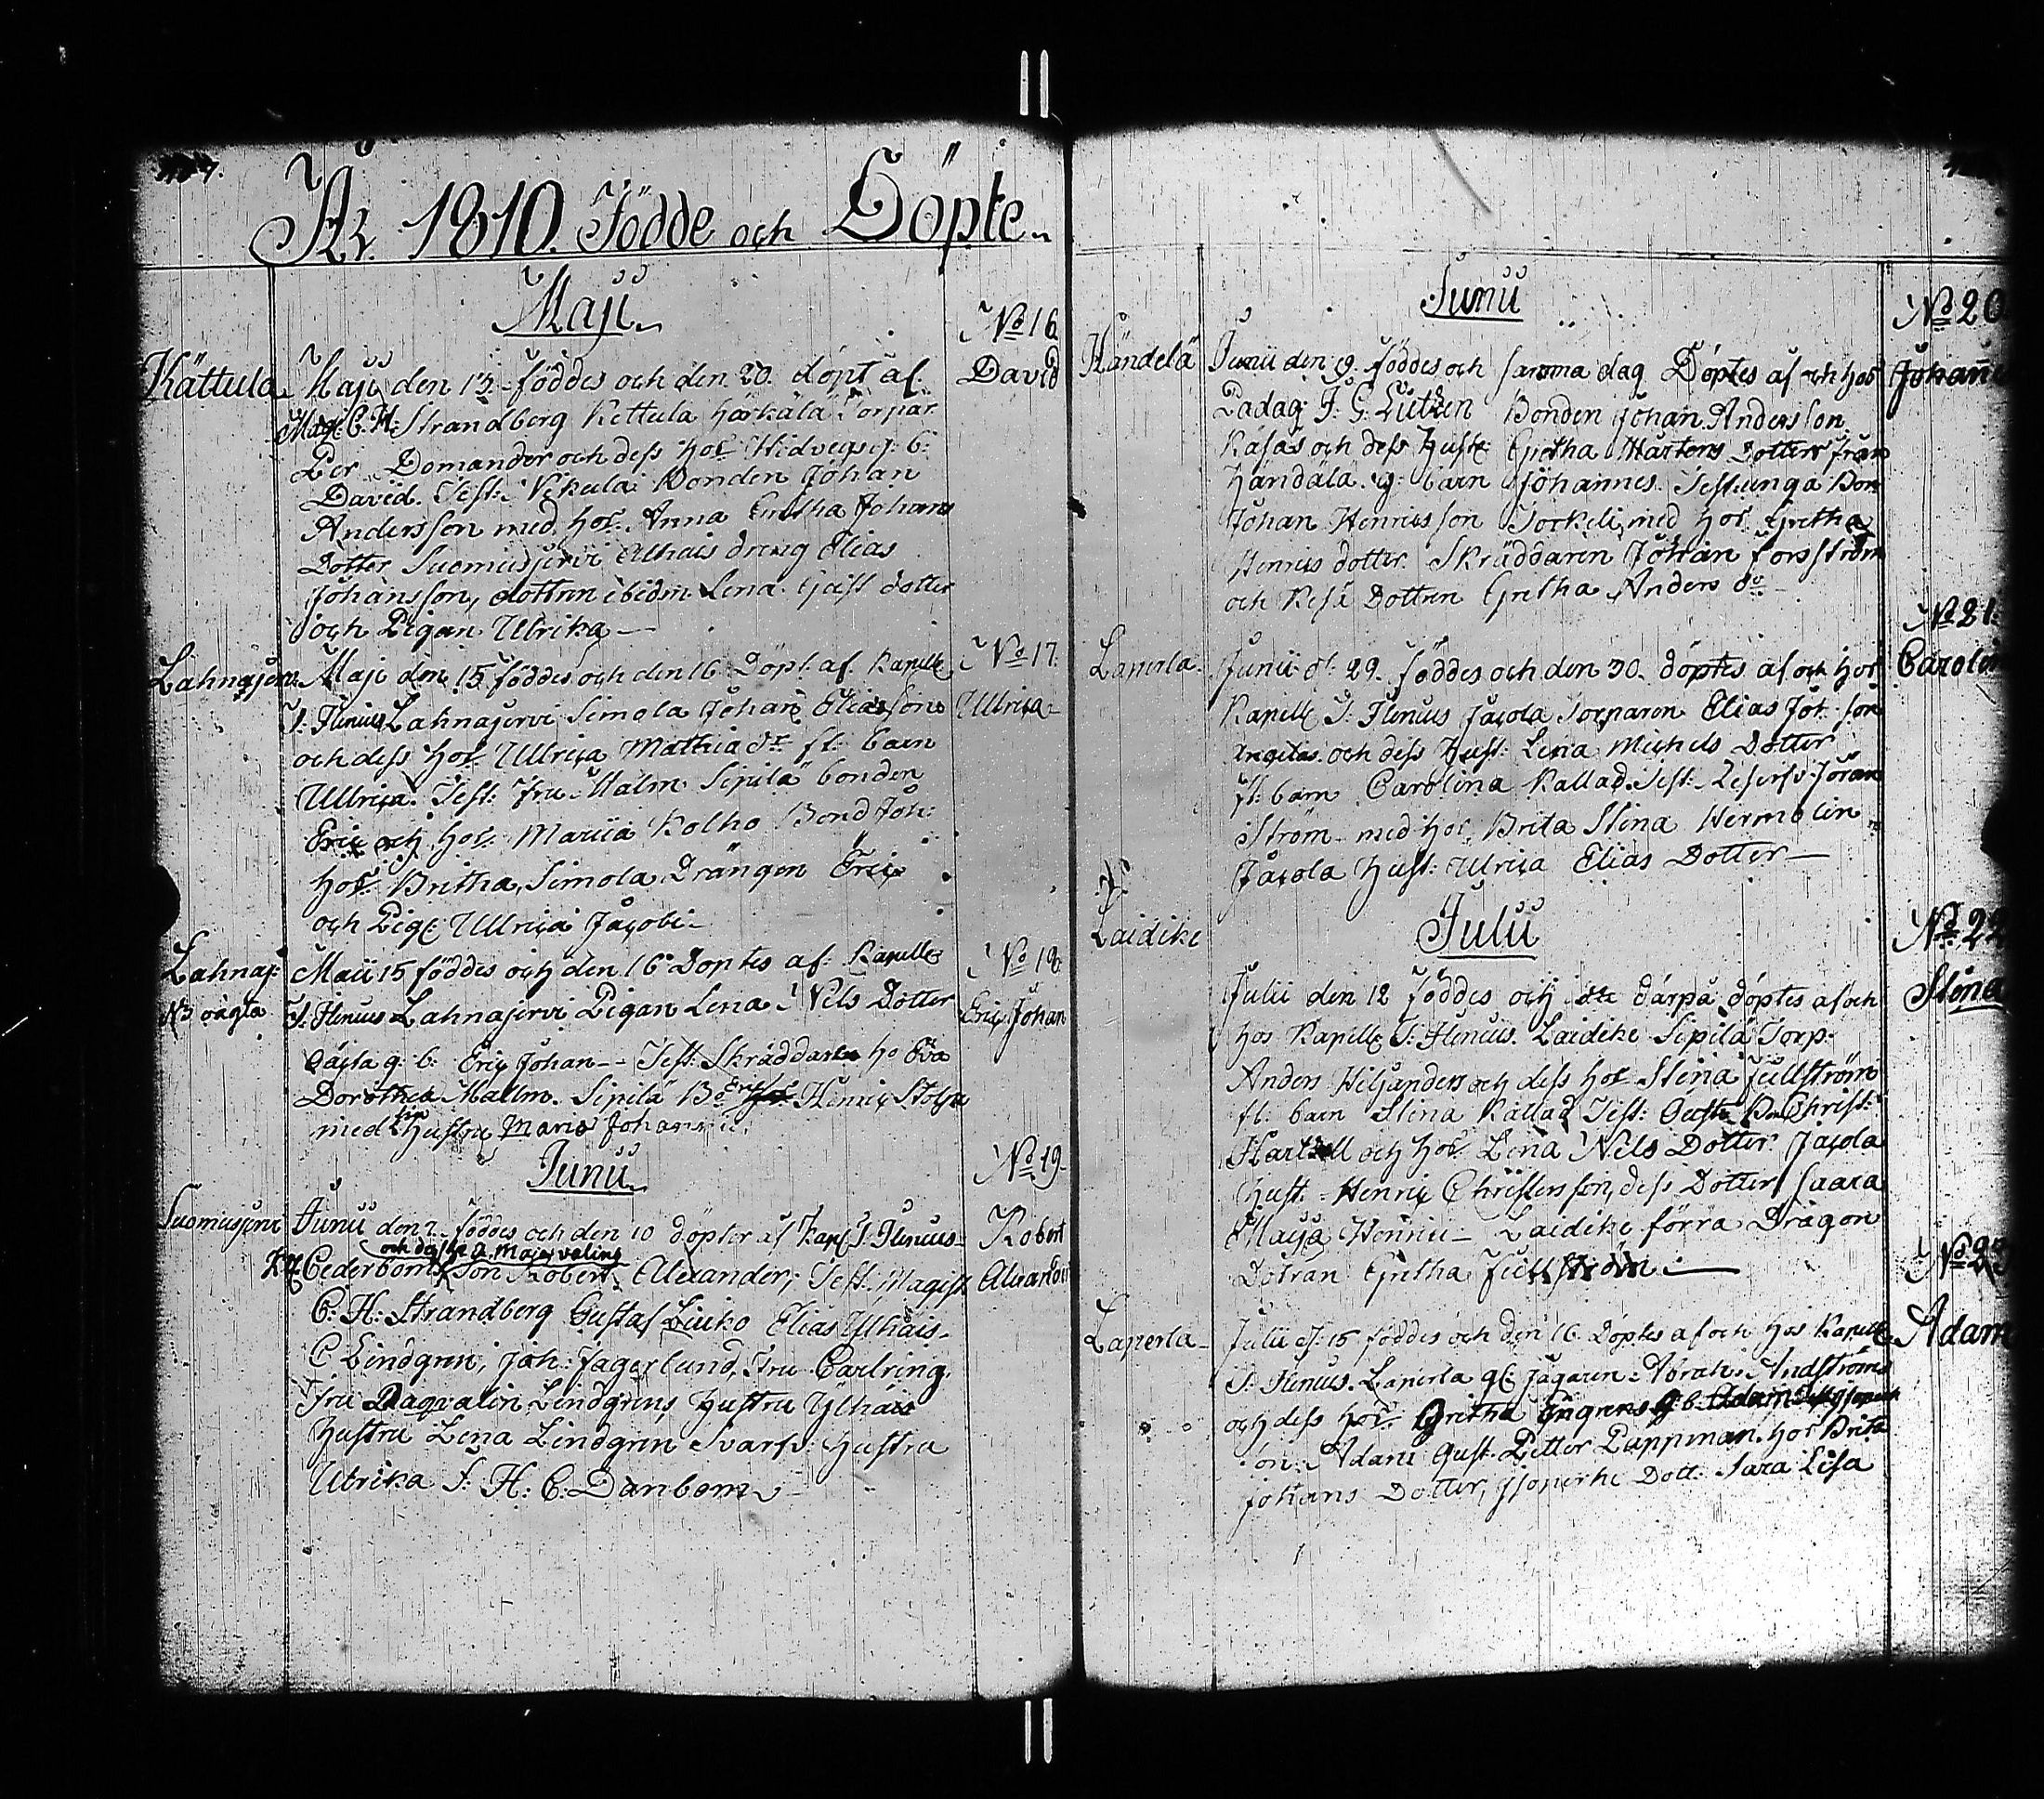 År. 1810. Födde och Döpte.
Maji.
No 16
David
Kättula
Maji den 13 föddes och den 20. döpt af.
Mag: C. H: Strandberg Kettula Härkälä Torpar
Per Domander och dess Hos Hedvig g: b:
David. Test: Nikula Bonden Johan
Andersson med hos. Anna Gretha Johans
Dotter Suomusjervi Alhais dreng Elias
Johansson, dottren ibidm Lena Giest dotter
och Pigan Ulrika
No 17.
Ullrica
Lahnajerv:
Maji den 15 föddes och den 16 Döpt af Kapell
J: Ilenius Lahnajervi Simola Johan Eliæson
och dess Hos. Ullrica Mathiæ dr fl: barn
Ullrica. Test: Fru Malm Sipilä bonden
Eric och hos. Mariia Kolho Bond Joh:
hos. Britha, Simola Drängen Eric
och Pig: Ullrica Jacobi
No 18
Eric Johan
Lahnaj:
N3 oägta
Maii 15 föddes och den 16 Döptes af: Kapell
J: Ilenius Lahnajervi Pigan Lena Nils Dotter
oäcta g: b: Eric Johan -- Test: Skräddaren ho Eva
Dorothea Malm. Sipilä Henric
med sin hustru Maria Johans
Junii
No 19.
Robert
Alexander
Suomusjervi
Junii den 2 föddes och den 10 döpter af Kap: J. Ilenius
och des
Cederbom son Robert Alexander; Test: Magist
C: H: Strandberg Gustaf Liuko Elias Ylhäis
C Lindgren, Joh: Jagerlund, Fru Carlring.
Fru Dagvalin Lindgrens Hustru Ylhäis
Hustru Lena Lindgren Svarfv: hustru
Ulrika F: H: C: Danbom
Junii
No 20
Johann
Händelä
Junii den 9. föddes och samma dag Döptes af och hos
Padag: J: G: Lutzen Bonden Johan Andersson
Käsäs och dess Hust: Gretha Mårtens Dotter från
Händälä. g: barn Johannes. Test: unga Bon
Johan Henricsson Tockeli, med hos Gretha
Henrics dotter. Skräddaren Johan Forsström
och Kesä Dottren Gretha Anders do
No 21:
Carolin
Laperla
Junii d: 29. föddes och den 30. döptes af och hos
Kapell J: Ilenius Jacola Torparen Elias Joh: son
och dess Hust: Lena Michels Dotter
fl: barn Carolina Kallad. Test: Jöran
Ström med hos. Brita Stina Hermolin
Jacola Hust: Ulrica Elias Dotter
Julii
No 22
Stina
Laidike
Julii den 12 föddes och därpå döptes af och
hos Kapell J: Ilenius. Laidike Sipilä Torp:
Anders Hiljander och dess hos Stina Jullström
fl: barn Stina Kallad Test: Gust: Bo Christ:
Hartzell och hos Lena Nils Dotter. Jacola
Hust. Henric Christerson, dess Dotter Saara
Maija Henric Laidike förra Dragon
Dotran Gretha Jullström
No 23
Adam
Laperla
Julii d: 15 föddes och den 16 Döptes af och hos Kapell
J: Ilenius. Laperla gl: Jägaren Abrah: Andström
och dess hos Gretha Engrens g: b: Adam
Adam Gust. Petter Pappman. hos Brita
Johans Dotter, Isoperhe Dott: Sara Lisa